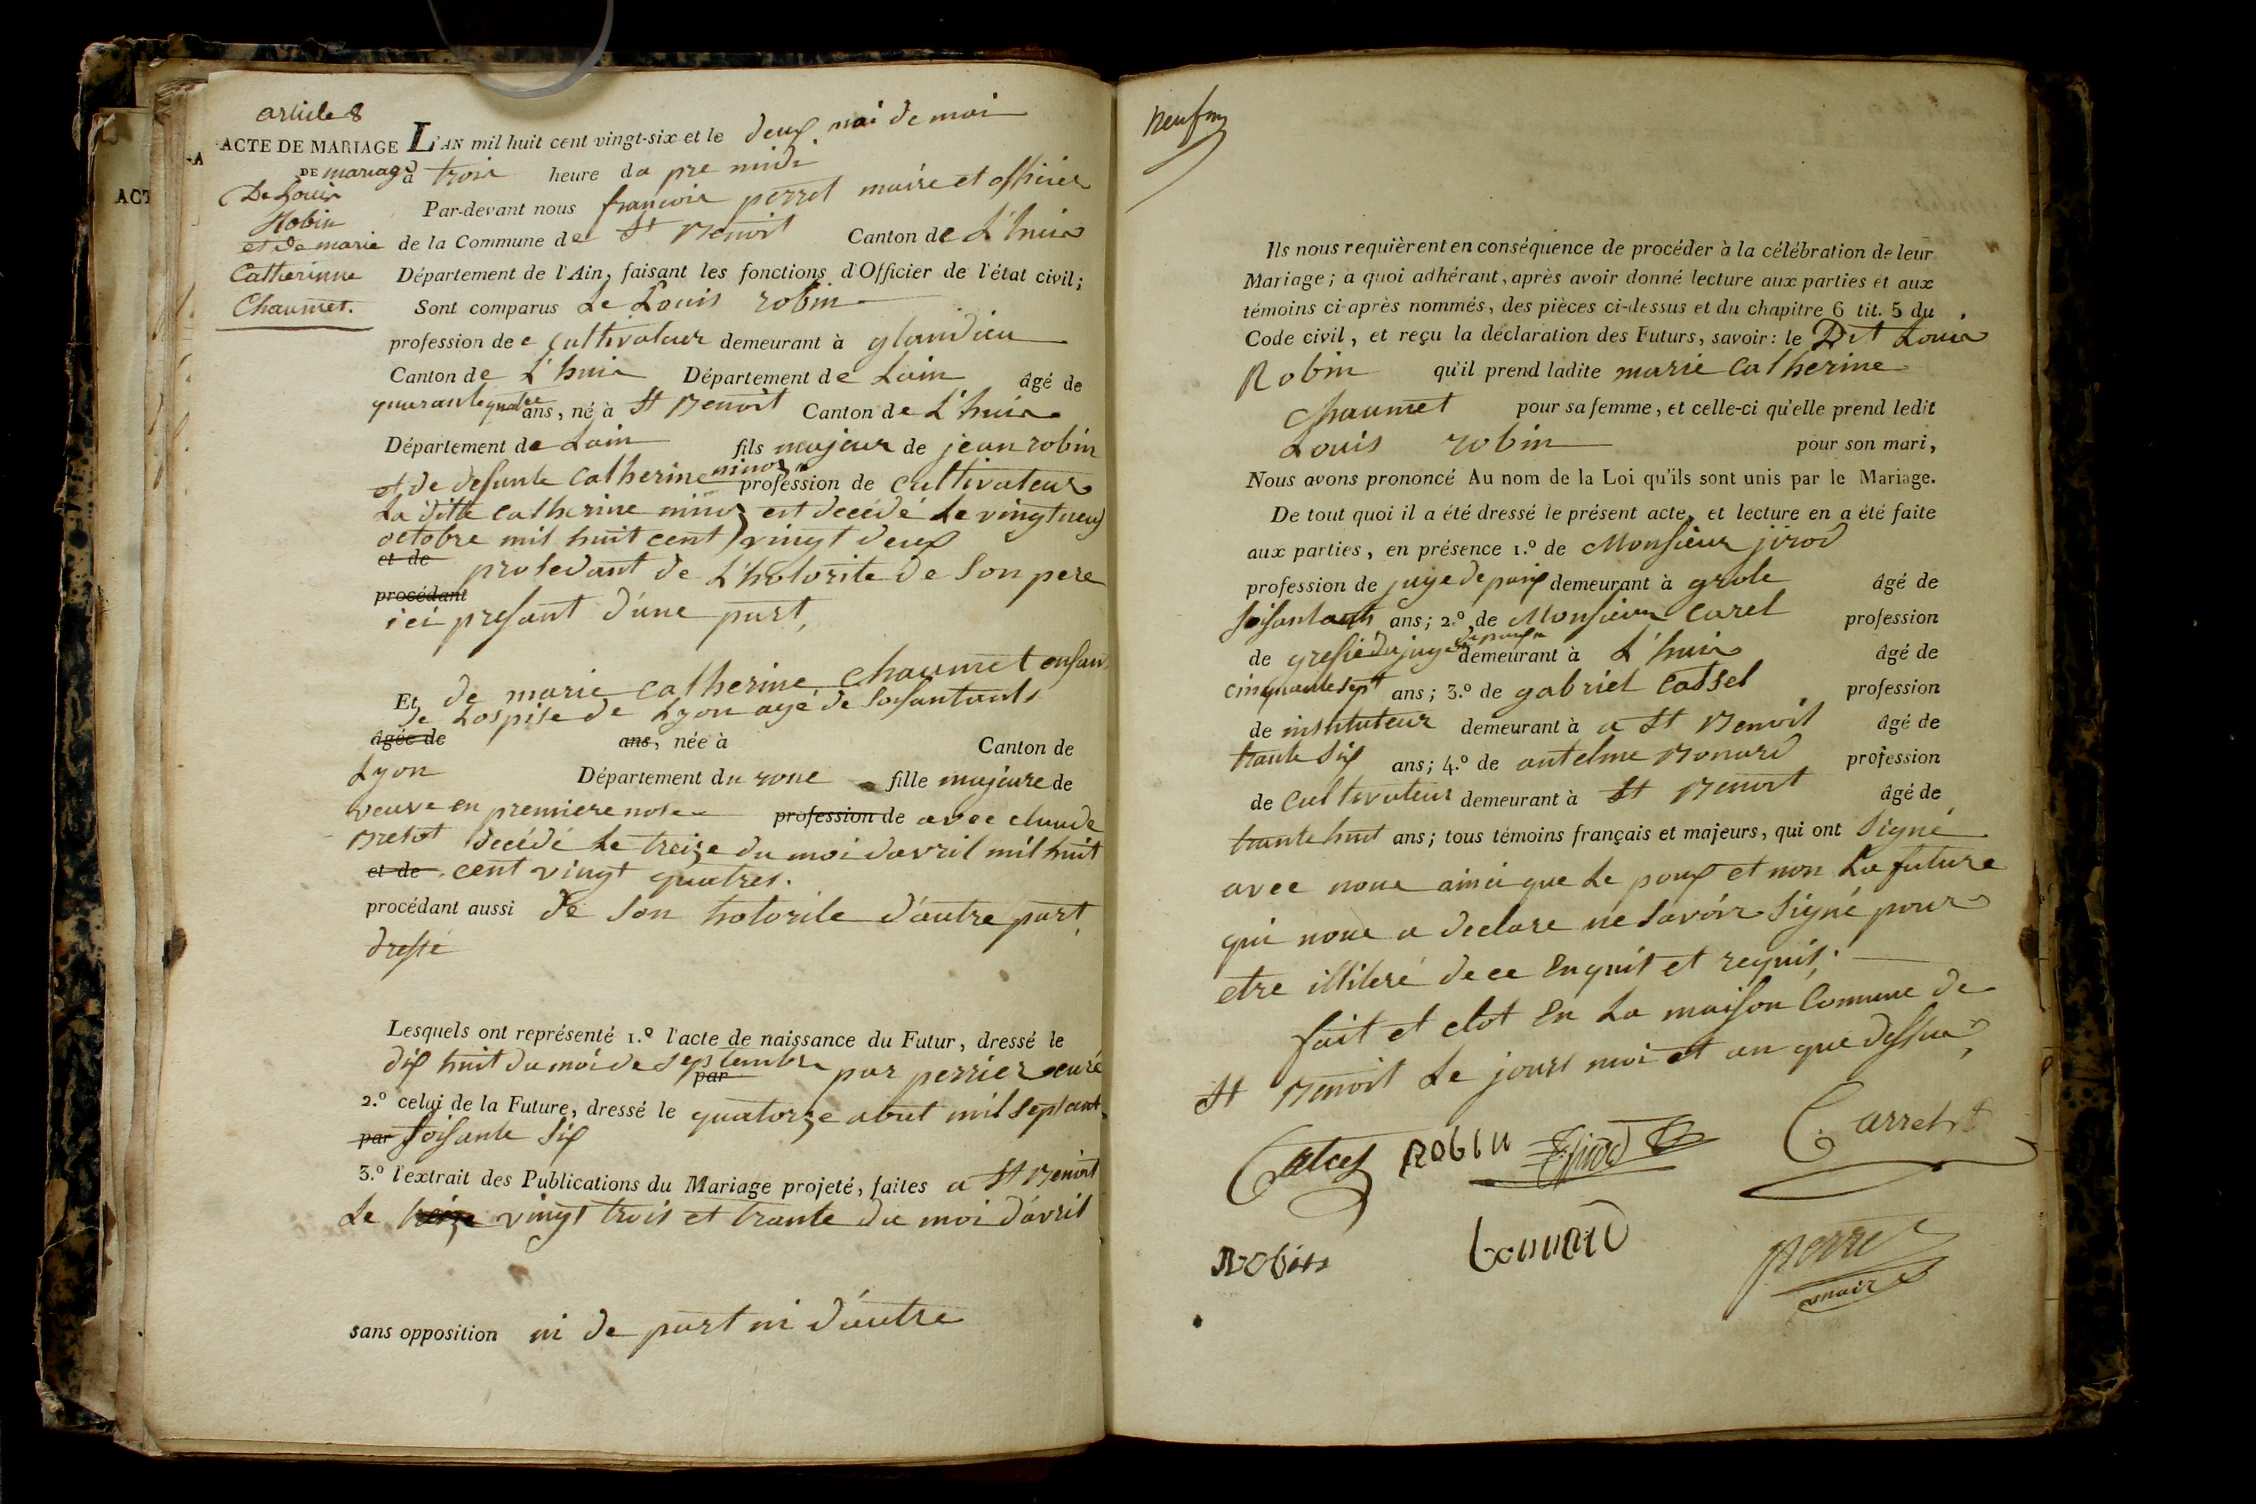 article 8
ACTE DE MARIAGE
DE mariage
De Louis
Robin
et de marie
Catherinne
Chaumet.
L'AN mil huit cent vingt-six et le deux mai de moi
à trois heure da pre midi
Par-devant nous francois perret maire et officier
de la Commune de St Benoit Canton de L'huis
Département de l'Ain, faisant les fonctions d'Officier de l'état civil;
Sont comparus Le Louis robin
profession de cultivateur demeurant à glandieu
Canton de L'huis Département de Lain âgé de
quarante quatre ans, né à St Benoit Canton de L'huis
Département de Lain fils majeur de jean robin
et de defunte Catherine minoz profession de cultivateur
La ditte catherine minoz est decédé le vingt neuf
octobre mil huit cent vingt deux
et de
procédant
protedant de L'hotorite de son pere
ici presant d'une part,
Et de marie catherine chaumet enfan
de Lospise de Lyon agé de soisantants
âgée de ans, née à Canton de
Lyon Département du rone fille majeure de
veuve en premiere nose profession de avec claude
decédé le treize du moi davril mil huit
et de cent vingt quatres.
procédant aussi de son hotorite d'autre part,
dressé
Lesquels ont représenté 1.º l'acte de naissance du Futur, dressé le
dix huit du moi de septembre par par perrier curé
2.º celui de la Future, dressé le quatorze aout mil septcent
par soisante six
3.º l'extrait des Publications du Mariage projeté, faites a St Benoit
Le treize vingt trois et trante du moi d'avril
sans opposition ni de part ni d'autre
neuf
Ils nous requièrent en conséquence de procéder à la célébration de leur
Mariage; à quoi adhérant, après avoir donné lecture aux parties et aux
témoins ci-après nommés, des pièces ci-dessus et du chapitre 6 tit. 5 du
Code civil, et reçu la déclaration des Futurs, savoir: le Dit Louis
Robin qu'il prend ladite marie catherine
chaumet pour sa femme, et celle-ci qu'elle prend ledit
Louis robin pour son mari,
Nous avons prononcé Au nom de la Loi qu'ils sont unis par le Mariage.
De tout quoi il a été dressé le présent acte, et lecture en a été faite
aux parties, en présence 1.º de Monsieur jirod
profession de juge de paix demeurant à grole âgé de
soisantants ans; 2.º de Monsieur Caret profession
de grefié du juge de paix demeurant à L'huis âgé de
cinquante sept ans; 3.º de gabriel Catsel profession
de instituteur demeurant à a St Benoit âgé de
trante six ans; 4.º de antelme Bonard profession
de cultivateur demeurant à St Benoit âgé de
trante huit ans; tous témoins français et majeurs, qui ont signé
avec nous ainci que le poux et non La future
qui nous a declare ne savoir signé pour
etre illiteré de ce Enquit et requis.
fait et clot En La maison Commune de
St Benoit Le jours moi et an que dessus,
ROBIN
Girod
C. arret
Robin
bonnard
perret
maire